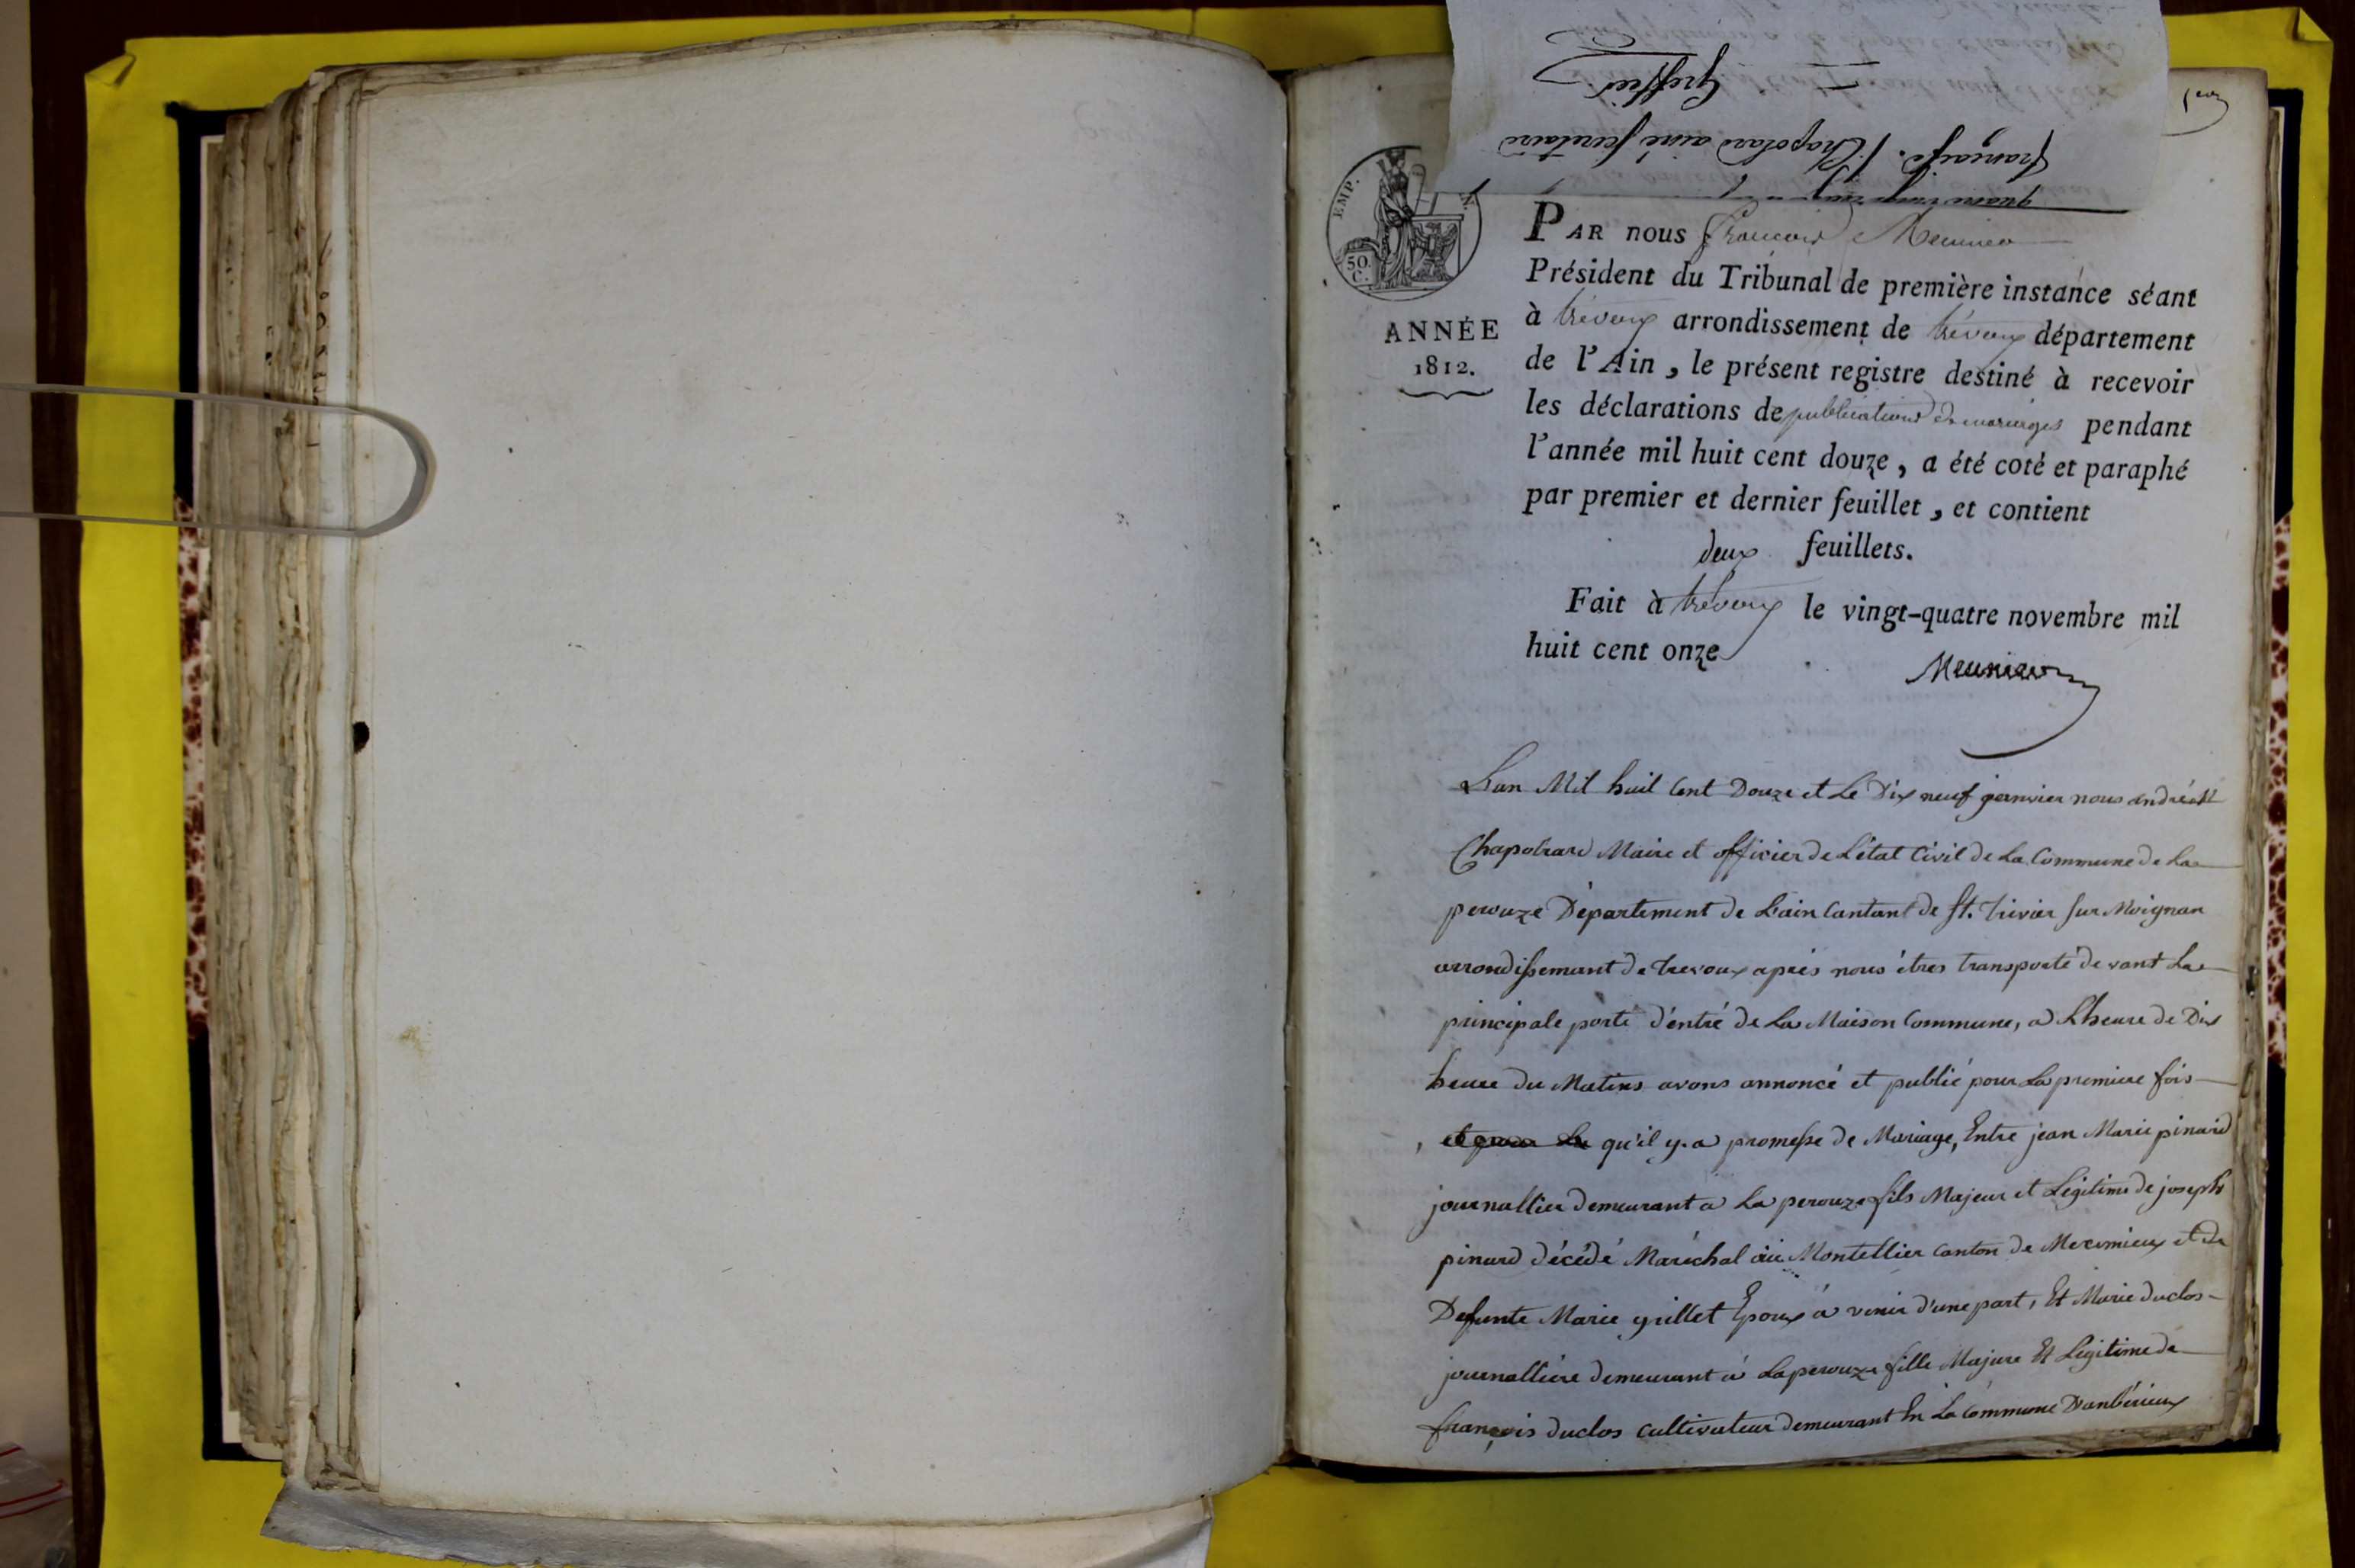 1er
Greffier
française. / Chapotard ainé secretaire
EMP.
50.
C.
ANNÉE
1812.
PAR nous François Meunier
Président du Tribunal de première instance séant
à trévoux arrondissement de trévoux département
de l'Ain, le présent registre destiné à recevoir
les déclarations de publications de mariages pendant
l'année mil huit cent douze, a été coté et paraphé
par premier et dernier feuillet, et contient
deux feuillets.
Fait à trévoux le vingt-quatre novembre mil
huit cent onze
Meunier
L'an Mil huit Cent Douze et Le Dix neuf janvier nous andré
Chapotard Maire et officier de L'état Civil de La Commune de La
perouze Département de L'ain Cantant de St. Trivier sur Moignan
arrondissemant de Trevoux après nous êtres transporté devant La
principale porte d'entré de La Maison Commune, a Lheure de Dix
heure du Matins avons annoncé et publié pour La premiere fois
et pour La qu'il y a promesse de Mariage, Entre jean Marie pinard
journallier demeurant a La perouze fils Majeur et Légitime de joseph
pinard décédé Maréchal au Montellier Canton de Meximieux et de
Defunte Marie grillet Epoux à venir d'une part, Et Marie duclos
journallière demeurant à La perouze fille Majure Et Légitime de
françois duclos Cultivateur demeurant En La Commune D'anbérieux